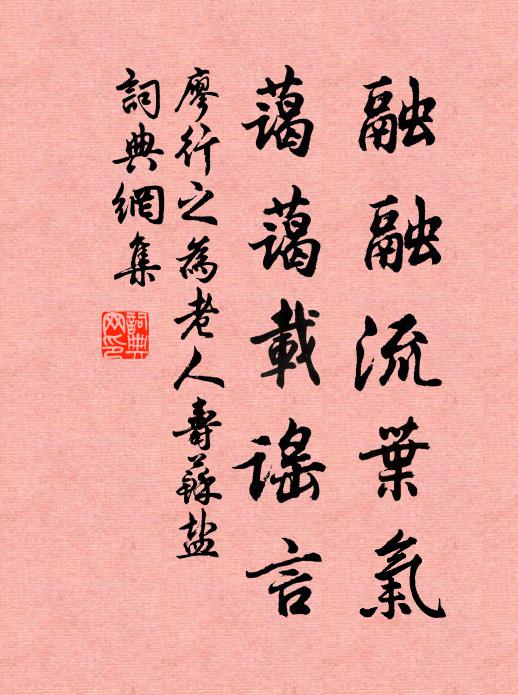 融融流葉氣
藹藹載謠言
廖行之為老人壽蘇盐
詞典網集
詞典網印